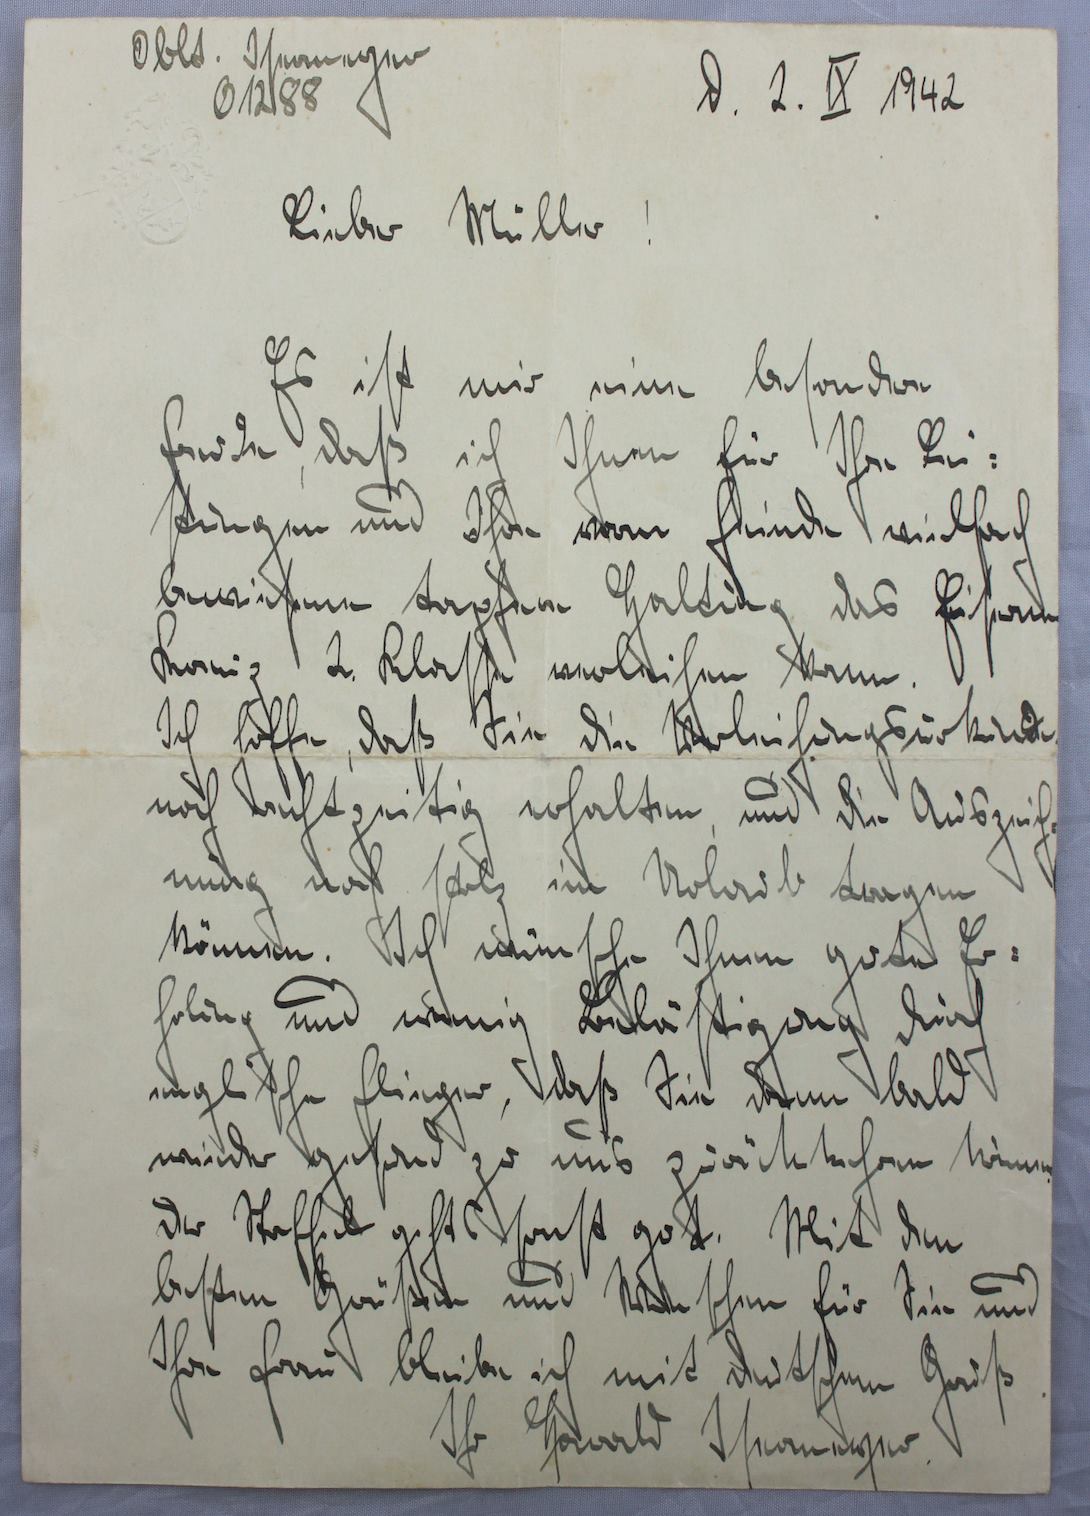 Oblt. Isermeyer
012188
D. 2. IX 1942
Lieber Müller!
Es ist mir eine besondere
Freude, daß ich Ihnen für Ihre Lei=
stungen und Ihre vorm Feinde vielfach
bewiesene tapfere Haltung das Eiserne
Kreuz 2. Klasse verleihen kann.
Ich hoffe, daß Sie die Verleihungsurkunde
noch rechtzeitig erhalten, und die Auszeich=
nung noch stolz im Urlaub tragen
können. Ich wünsche Ihnen gute Er=
holung und wenig Belästigung durch
englische Flieger, daß Sie dann bald
wieder gesund zu uns zurückkehren können.
Der Staffel gehts sonst gut. Mit den
besten Grüßen und Wünschen für Sie und
Ihre Frau bleibe ich mit deutschem Gruß
Ihr Harald Isermeyer.